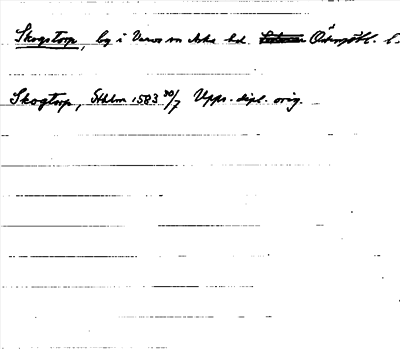 Skogstorp, by i Varv sn Aska hd. Östergötl. l.
Skogtorp, Sthlm 1583 30/7 Upps. dipl. orig.